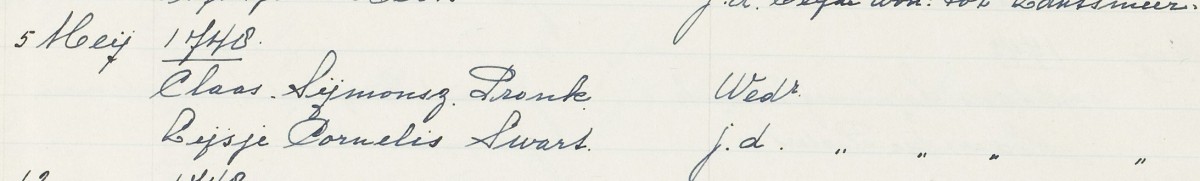 j.d. beyde won. tot Landsmeer.
5 Meij 1748.
Claas Sijmonsz. Pronk Wedr.
Lijsje Cornelis Swart. j.d. " " " "